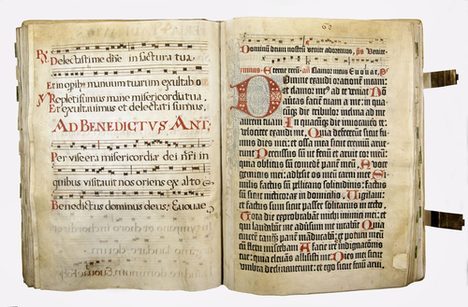 Delectasti me dñe in factura tua
Et in opib9 manuum tuarum exultabo
Repleti sumus mane misericordia tua
Et exultauimus et delectati sumus,
AD BENEDICTVS ANT,
Per viscera misericordiæ dei nr̃i in
quibus visitauit nos oriens ex alto
Benedictus dominus deus, Euouae
Dominum deum nostrum venite adoremus, ps Venite
Domine exaudi orationem meam:
et clamor me9 ad te veniat
auertas faciē tuam a me: in qua
cũq3 die tribulor inclina ad me
aurem tuam In quacũq3 die inuocauero te
velociter exaudi me. Quia defecerunt sicut fu
mus dies mei: et ossa mea sicut cremiũ aruer
unt Percussus sũ ut fenũ et aruit cor meũ:
quia oblitus sũ comedē panē meũ A voce
gemitus mei: adhesit os meũ carni mee Si
milis factus sũ pellicano solitudinis: factus
sũ sicut nicticorax in domicilio, Vigilaui
et factus sum sicut passer solitarius in tecto,
Tota die exprobrabāt michi inimici mei: et
qui laudabāt me aduersum me iurabāt Quia
cinerē tamq̃ panē manducabā: et poculum
meum cum fletu miscebam A facie ire indignationis
tue: quia eleuās allisisti me Dies mei sicut
umbra declinauerunt: et ego sicut fenũ arui,